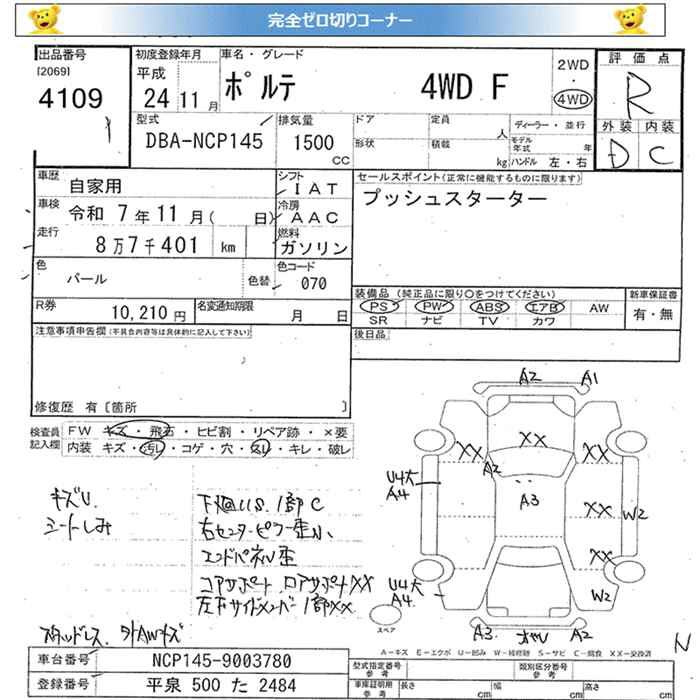 完全ゼロ切りコーナー
出品番号
[2069]
4109
初度登録年月
平成
24 11 月
車名・グレード
ポルテ 4WD F
2WD
・
4WD
評価点
R
外装 内装
D C
型式
DBA-NCP145
排気量
1500
CC
ドア
形状
定員
人
積載
kg
ディーラー・並行
モデル
年式
年
ハンドル 左・右
車歴
自家用
車検
令和 7年 11月( 日)
走行
8万7千401 km
色
パール
色替
シフト
IAT
冷房
AAC
燃料
ガソリン
色コード
070
セールスポイント(正常に機能するものに限ります)
プッシュスターター
R券
10,210 円
名変通知期限
月 日
装備品(純正品に限り○をつけてください)
PS PW ABS エアB AW
SR ナビ TV カワ
新車保証書
有・無
後日品
注意事項申告欄(不具合内容等は具体的に記入して下さい)
修復歴 有〔箇所 〕
検査員
記入欄
FW キズ・飛石・ヒビ割・リペア跡・×要
内装 キズ・汚れ・コゲ・穴・反し・キレ・破レ
キズU
シートしみ
下廻りUS、1部C
右センターピラー歪小
エンドパネル歪
コアサポート ロアサポートXX
左右サイドメンバー1部XX
スタッドレス
A2 A1
XX XX XX
A2
U4大
A4
A3
XX W2
XX
U4大
A4
W2
スペア
A3 A2
N
A-キズ E-エクボ U-凹み W-補修跡 S-サビ C-腐食 XX-交換済
車台番号
NCP145-9003780
登録番号
平泉 500 た 2484
型式指定番号
参考
類別区分番号
参考
車庫証明用
参考
長さ
cm
幅
cm
高さ
cm